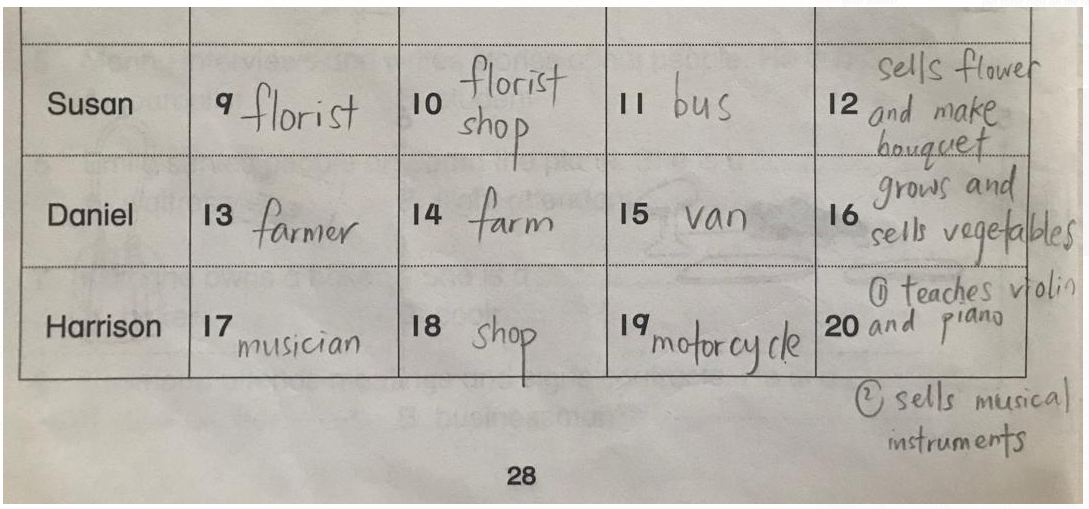 Susan 9 florist 10 florist shop 11 bus 12 sells flower and make bouquet
Daniel 13 farmer 14 farm 15 van 16 grows and sells vegetables
Harrison 17 musician 18 shop 19 motorcycle 20 ① teaches violin and piano
② sells musical
instruments
28